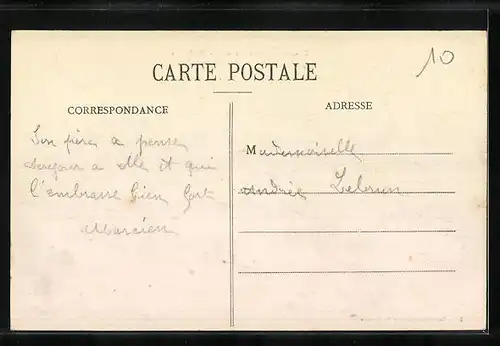 10
CARTE POSTALE
CORRESPONDANCE
Son père a pense
a elle et qui
l'embrasse bien fort
Marcien
ADRESSE
Mademoiselle
Andrée Lebrun